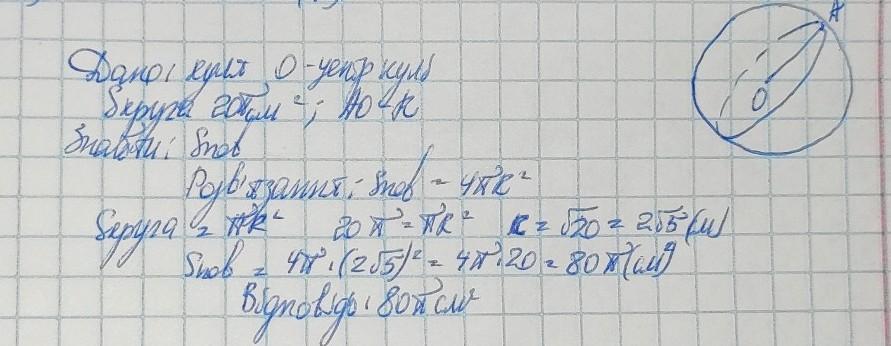 Дано: куля О - центр кулі
Sкруга 20π см²; АО - R
Знайти: Sпов
Розв'язання: Sпов = 4πR²
Sкруга = πR² 20π = πR² R = √20 = 2√5 (см)
Sпов = 4π · (2√5)² = 4π · 20 = 80π (см²)
Відповідь: 80π см²
А
О